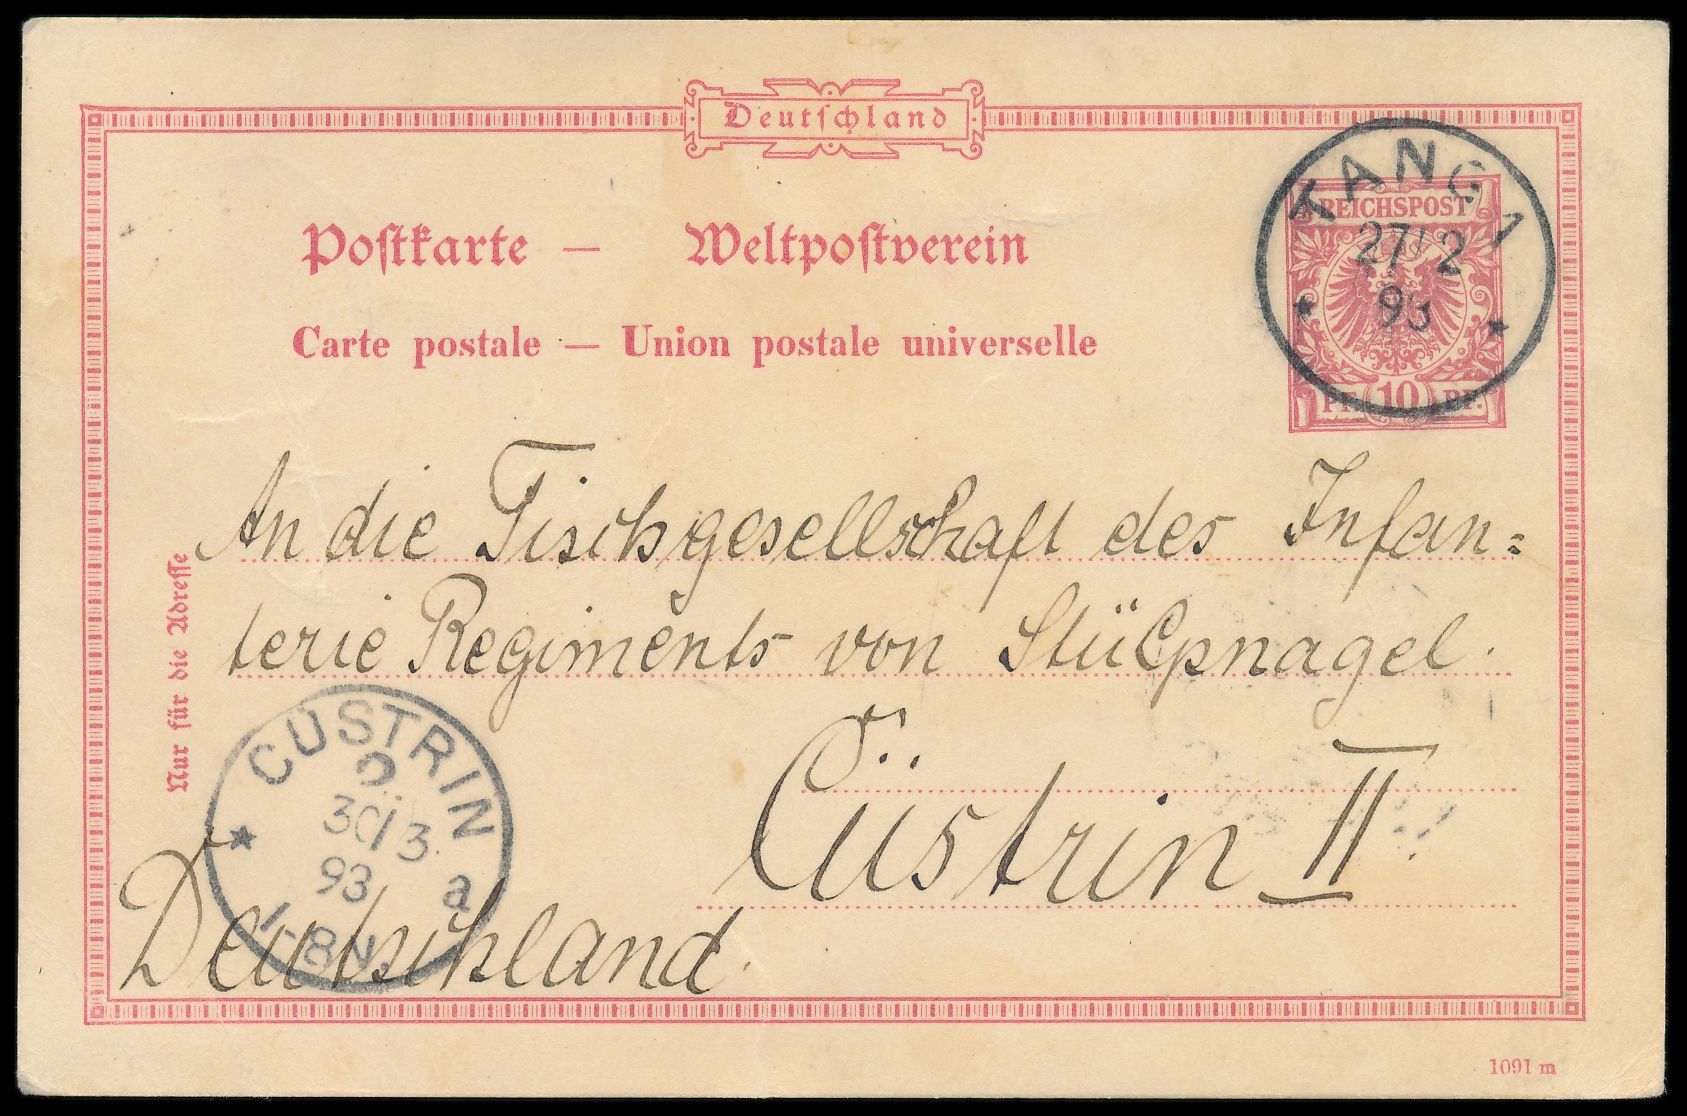 Deutschland
Postkarte — Weltpostverein
Carte postale — Union postale universelle
TANGA
27/2
93
REICHSPOST
PF. 10 PF.
An die Tischgesellschaft des Infan=
terie Regiments von Stülpnagel.
Cüstrin II.
Deutschland.
Nur für die Adresse
CÜSTRIN
30/3
93
a
1-8 N.
1091 m